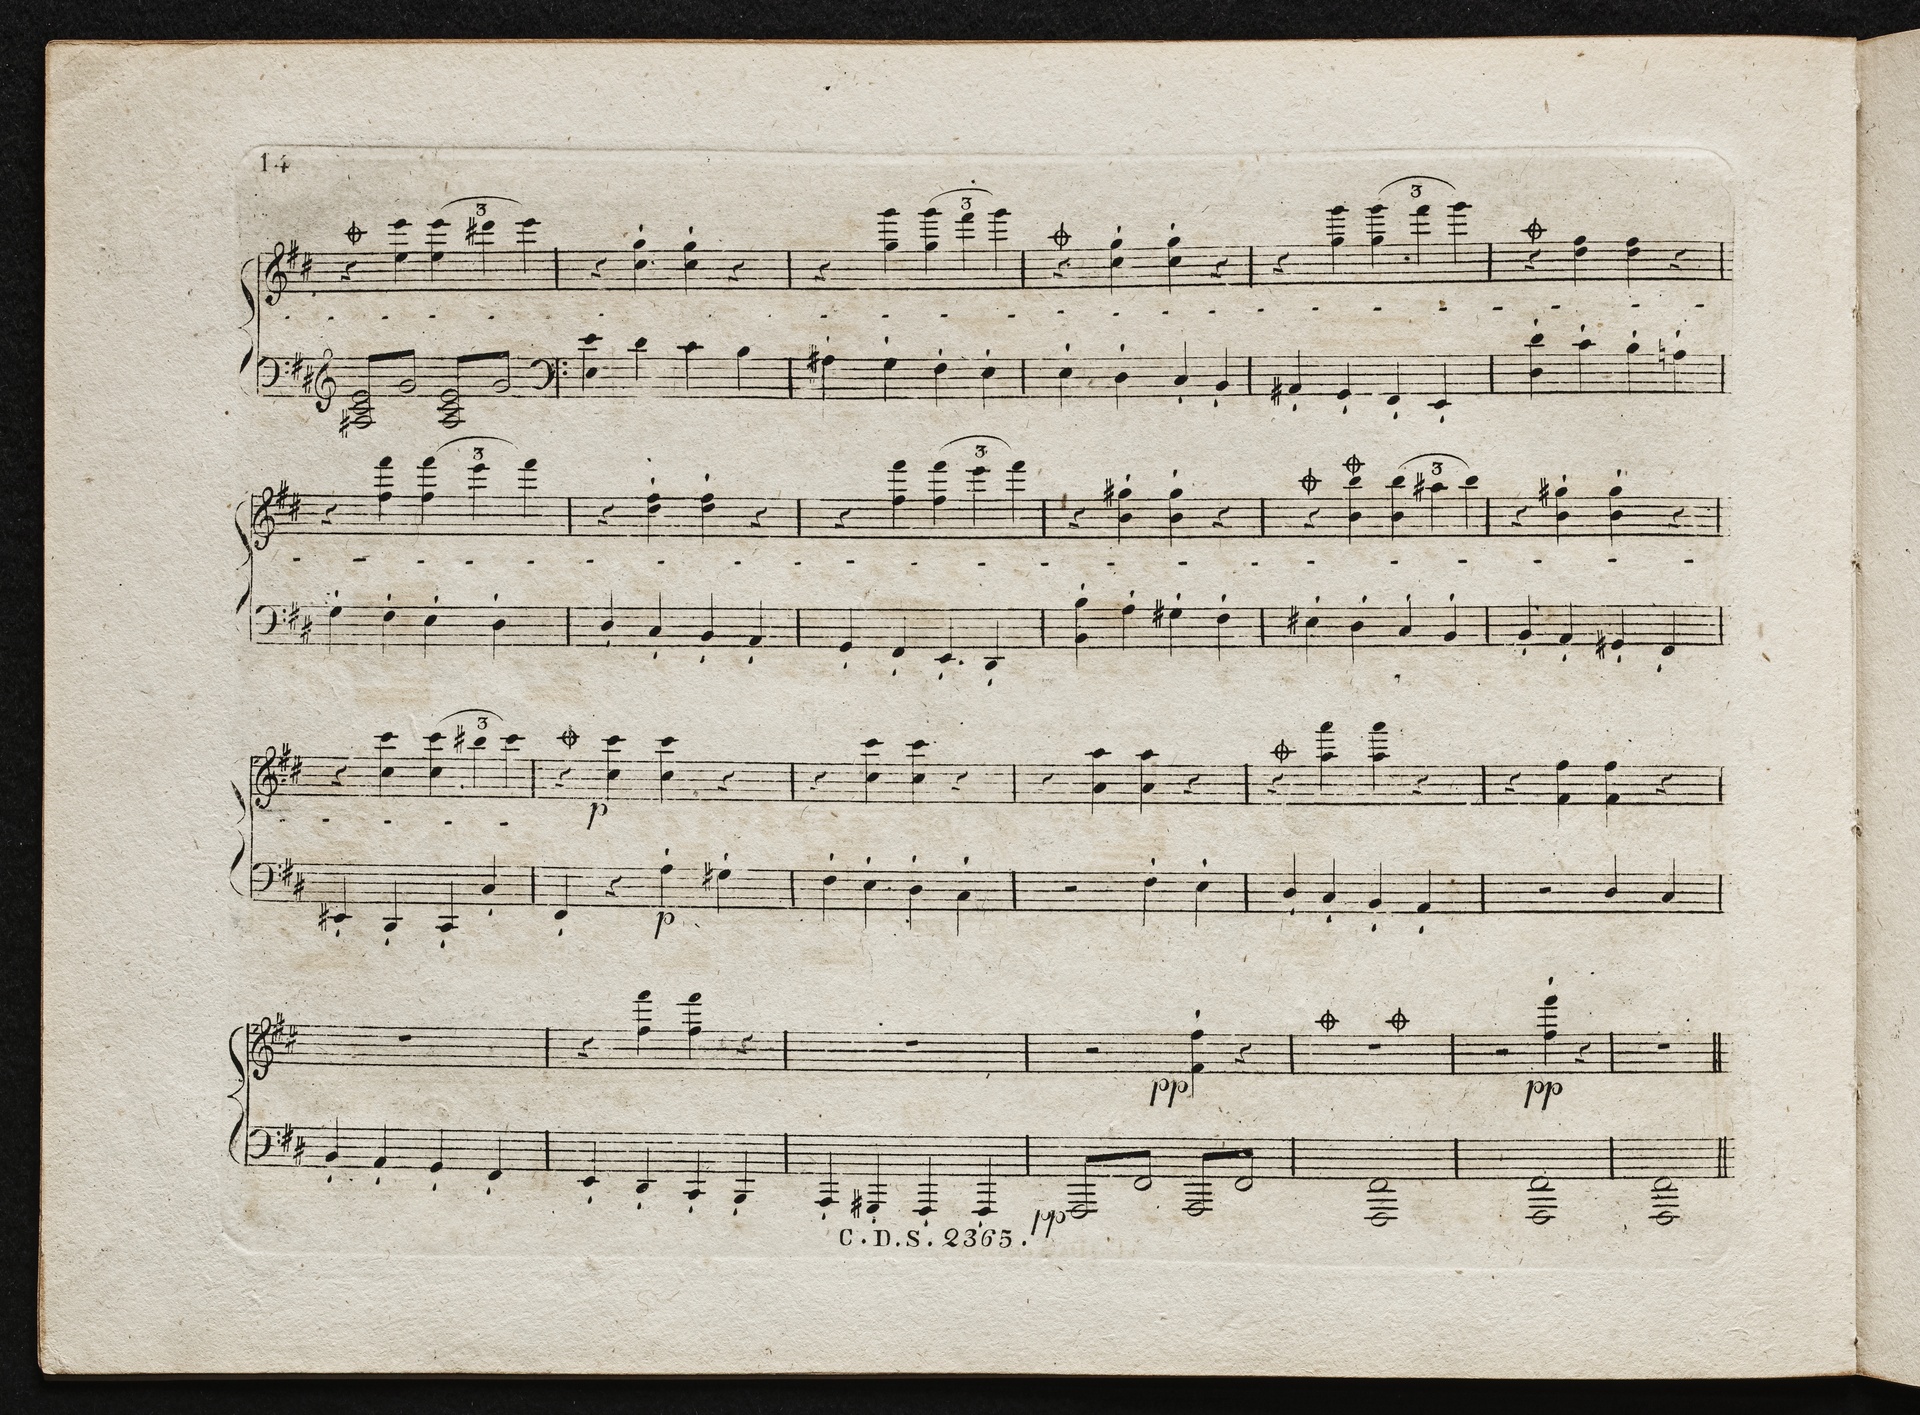 14
3 3 3
3 3 3
3
p
p
pp pp
pp
C.D.S. 2365.